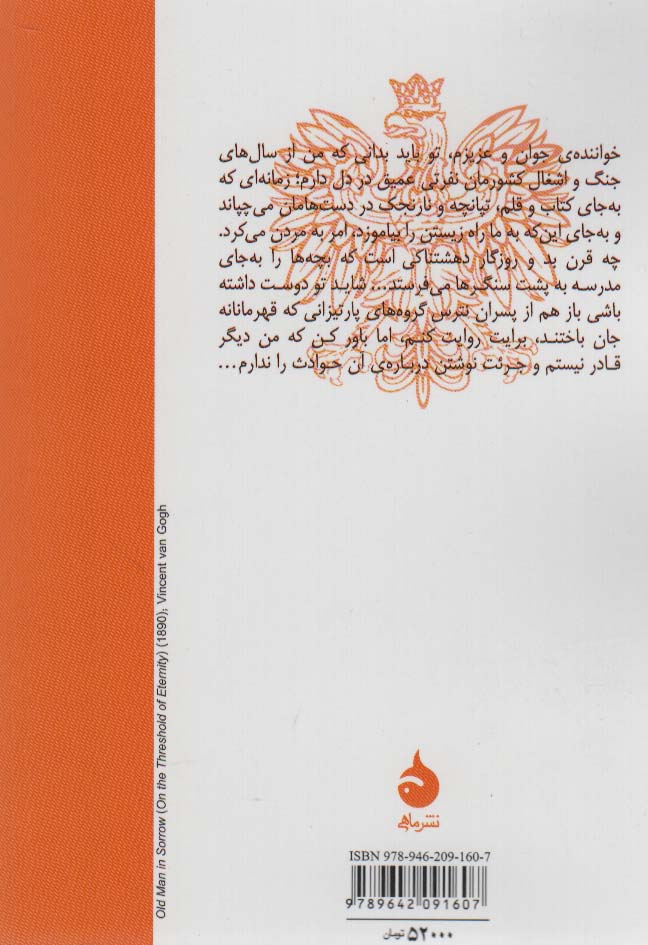 خواننده‌ی جوان و عزیزم، تو باید بدانی که من از سال‌های
جنگ و اشغال کشورمان نفرتی عمیق در دل دارم؛ زمانه‌ای که
به‌جای کتاب و قلم، تپانچه و نارنجک در دست‌هامان می‌چپاند
و به‌جای این‌که به ما راه زیستن را بیاموزد، امر به مردن می‌کرد.
چه قرن بد و روزگار دهشتناکی است که بچه‌ها را به‌جای
مدرسه به پشت سنگرها می‌فرستد... شاید تو دوست داشته
باشی باز هم از پسران نترس گروه‌های پارتیزانی که قهرمانانه
جان باختند، برایت روایت کنم، اما باور کن که من دیگر
قادر نیستم و جرئت نوشتن درباره‌ی آن حوادث را ندارم...
Old Man in Sorrow (On the Threshold of Eternity) (1890); Vincent van Gogh
نشرماهی
ISBN 978-946-209-160-7
9 789642 091607
۵۲۰۰۰ تومان